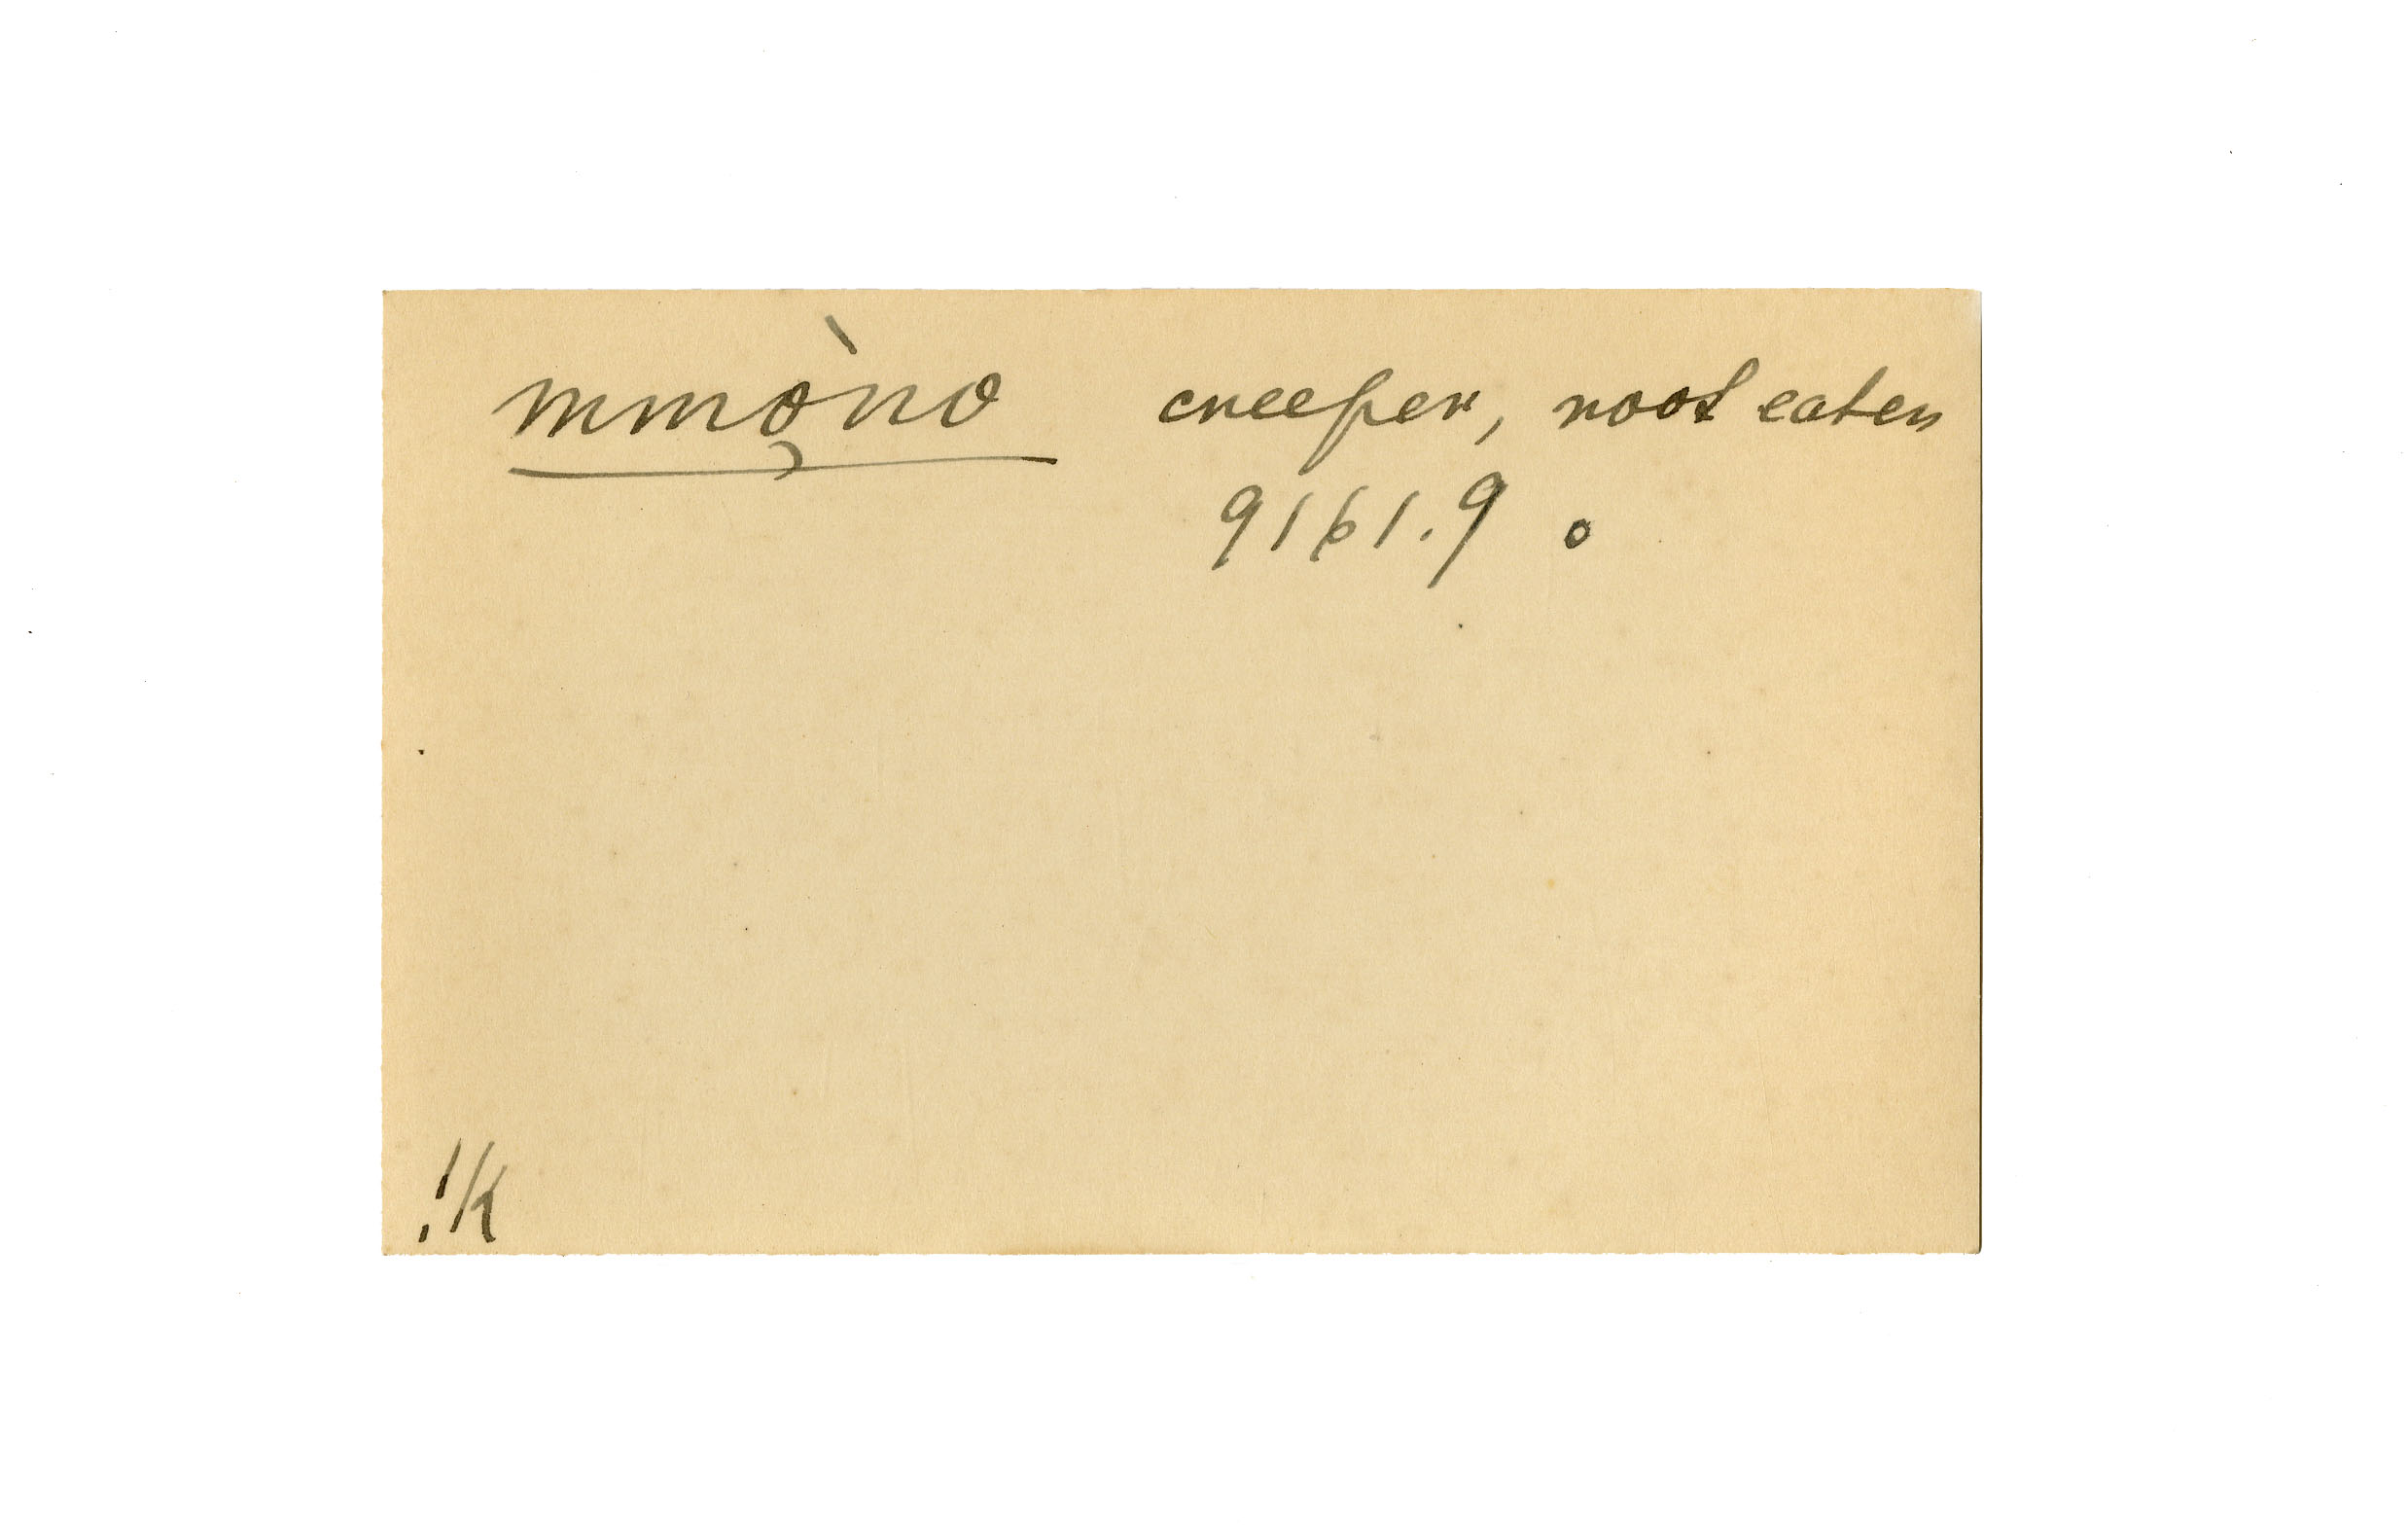 mmǫ̀no creeper, root eaten
9161.9 o
!k